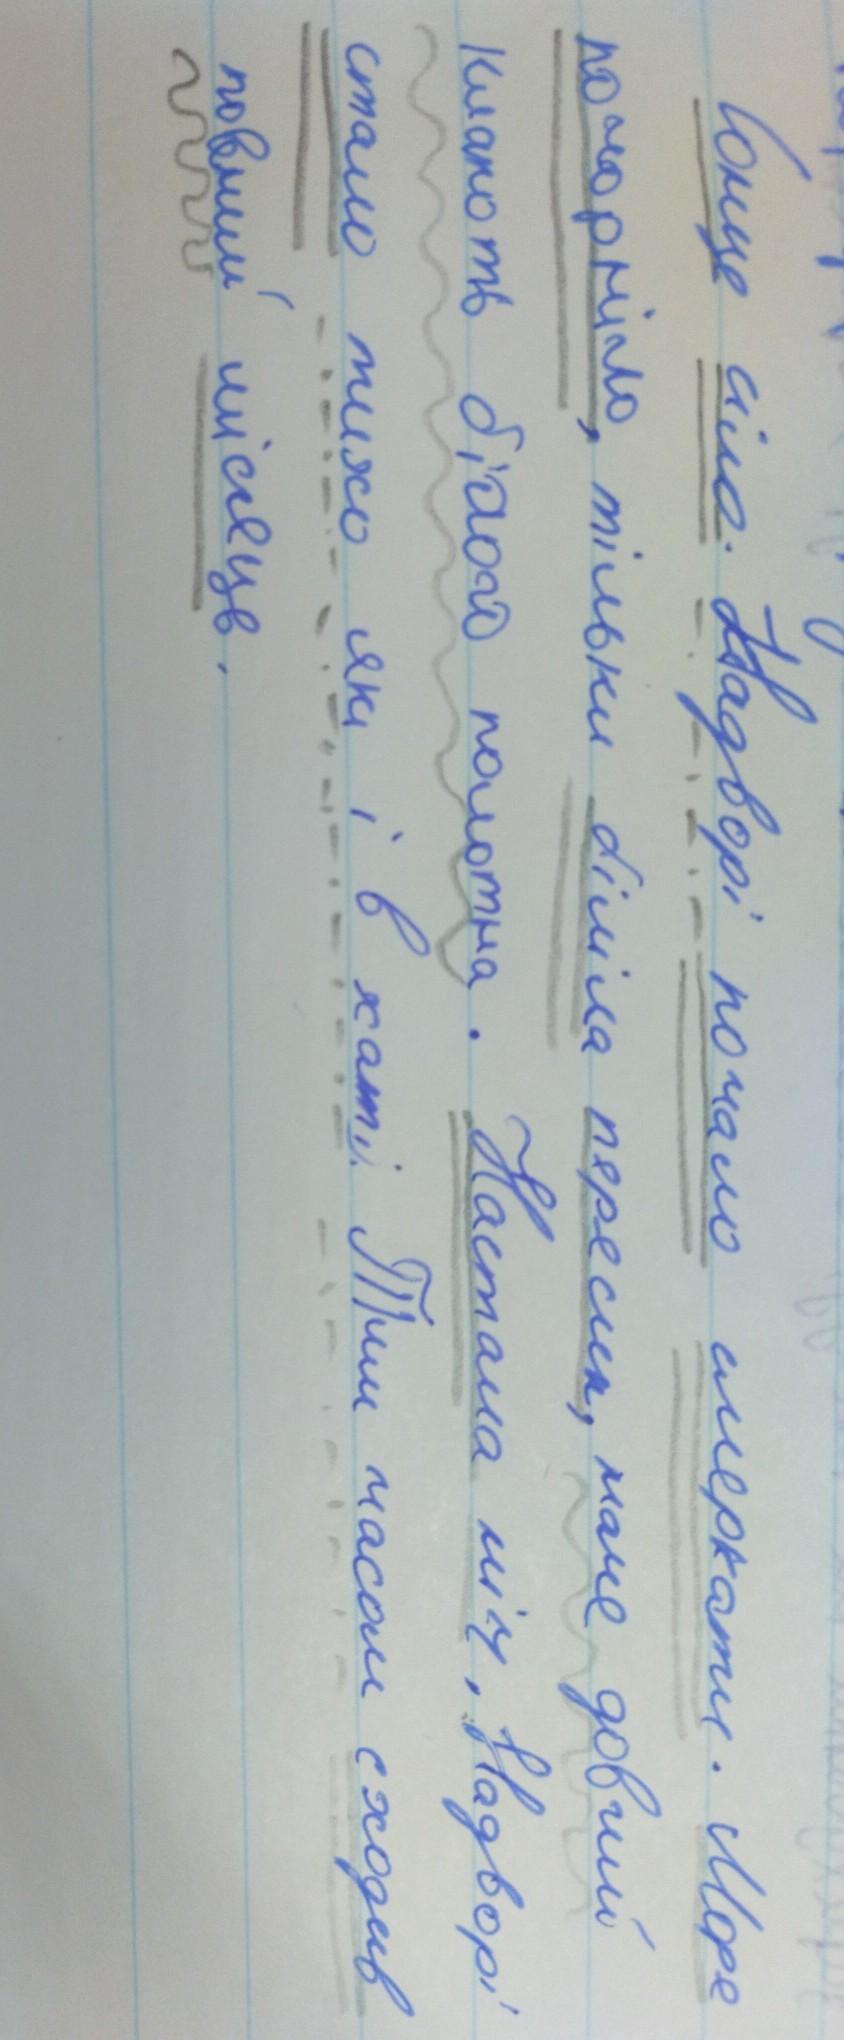 Сонце сіло. Надворі почало смеркати. Море
почорніло, тільки біліла пересип, наче довгий
клапоть білого полотна. Настала ніч. Надворі
стало тихо як і в хаті. Тим часом сходив
повний місяць.